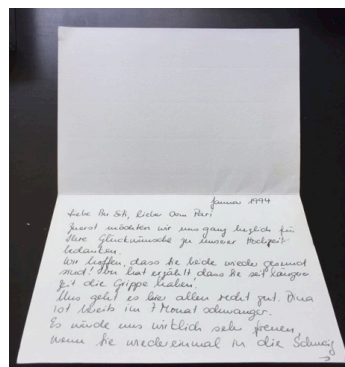 Januar 1994
Liebe Frau Sik, lieber Dom Peri
Zuerst möchten wir uns ganz herzlich für
Ihre Glückwünsche zu unserer Hochzeit
bedanken.
Wir hoffen, dass Sie beide wieder gesund
sind! hat erzählt, dass Sie seit längerer
Zeit die Grippe haben.
Uns geht es hier allen recht gut. Dina
ist bereits im 7 Monat schwanger.
Es würde uns wirklich sehr freuen,
wenn Sie wiedereinmal in die Schweiz